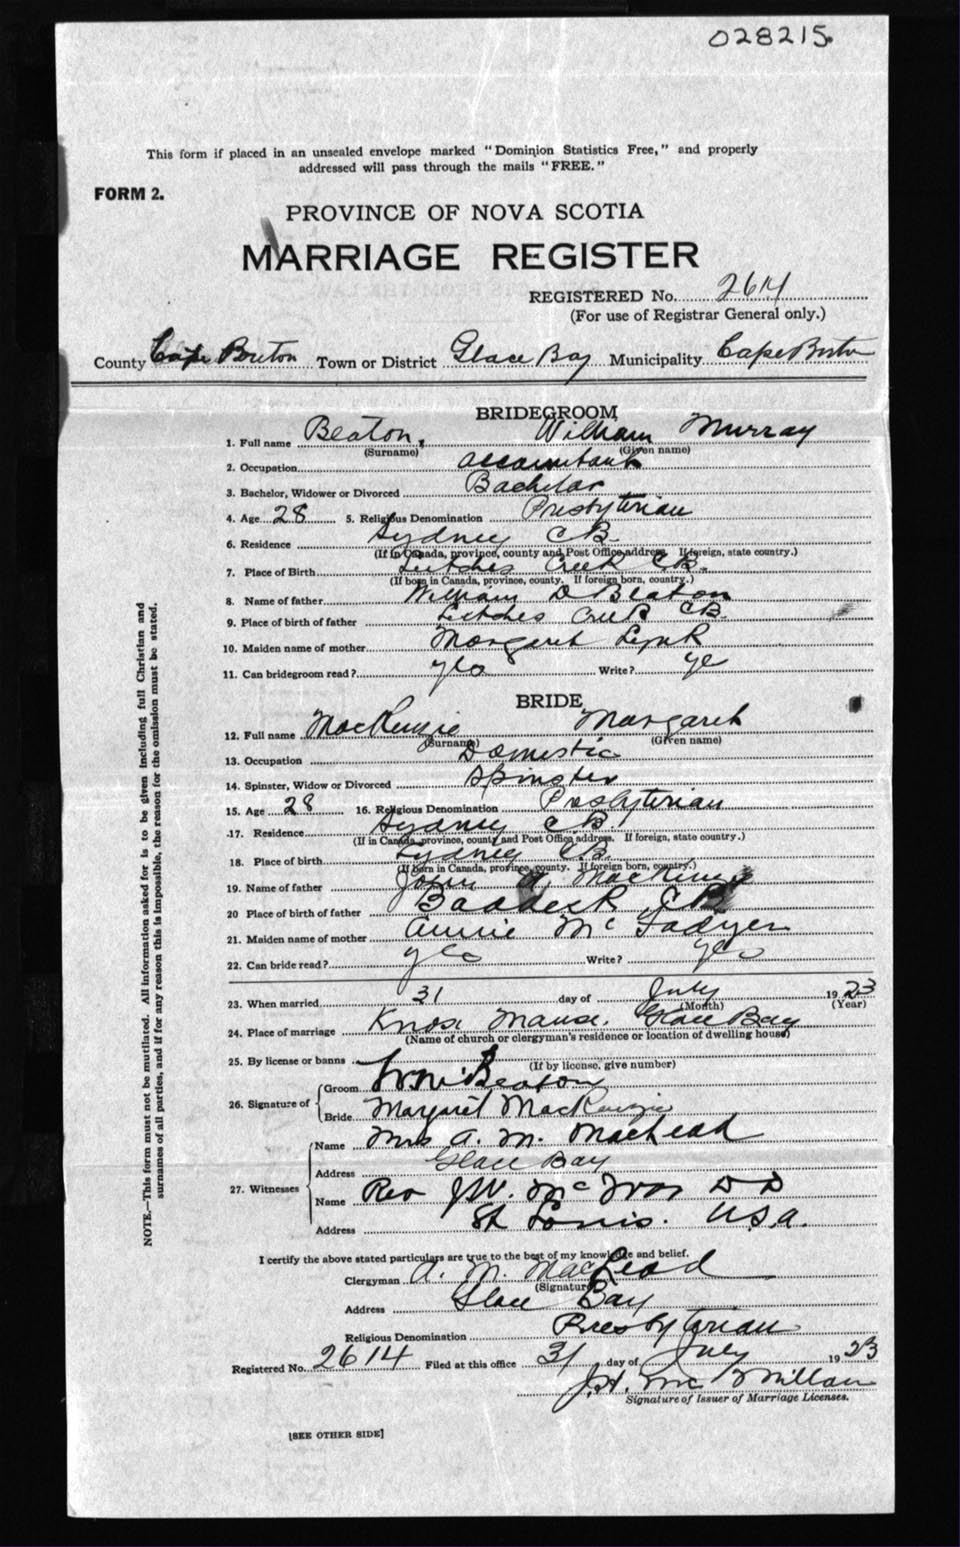 028215
This form if placed in an unsealed envelope marked "Dominion Statistics Free," and properly
addressed will pass through the mails "FREE."
FORM 2.
PROVINCE OF NOVA SCOTIA
MARRIAGE REGISTER
REGISTERED No. 2614
(For use of Registrar General only.)
County Cape Breton Town or District Glace Bay Municipality Cape Breton
BRIDEGROOM
1. Full name Beaton, William Murray
(Surname) (Given name)
2. Occupation accountant
3. Bachelor, Widower or Divorced Bachelor
4. Age 28 5. Religious Denomination Presbyterian
6. Residence Sydney C B
(If in Canada, province, county and Post Office address. If foreign, state country.)
7. Place of Birth Leitches Creek C B.
(If born in Canada, province, county. If foreign born, country.)
8. Name of father William D Beaton
9. Place of birth of father Leitches Creek C B.
10. Maiden name of mother Margaret Lynk
11. Can bridegroom read? yes Write? ye
BRIDE
12. Full name MacKenzie Margaret
(Surname) (Given name)
13. Occupation Domestic
14. Spinster, Widow or Divorced Spinster
15. Age 28 16. Religious Denomination Presbyterian
17. Residence Sydney C B.
(If in Canada, province, county and Post Office address. If foreign, state country.)
18. Place of birth Sydney C B
(If born in Canada, province, county. If foreign born, country.)
19. Name of father John A MacKenzie
20 Place of birth of father Baddeck C B
21. Maiden name of mother Annie McFadyen
22. Can bride read? yes Write? yes
23. When married 31 day of July 1923
(Month) (Year)
24. Place of marriage Knox Manse. Glace Bay
(Name of church or clergyman's residence or location of dwelling house)
25. By license or banns (If by license, give number)
26. Signature of Groom Wm. Beaton
Bride Margaret MacKenzie
27. Witnesses Name Mrs A. M. MacLeod
Address Glace Bay
Name Rev J W. McIvor D D
Address St Louis. U.S.A.
I certify the above stated particulars are true to the best of my knowledge and belief.
Clergyman A. M. MacLeod
(Signature)
Address Glace Bay
Religious Denomination Presbyterian
Registered No. 2614 Filed at this office 31 day of July 1923
J. H. McMillan
Signature of Issuer of Marriage Licenses.
[SEE OTHER SIDE]
NOTE.—This form must not be mutilated. All information asked for is to be given including full Christian and
surnames of all parties, and if for any reason this is impossible, the reason for the omission must be stated.